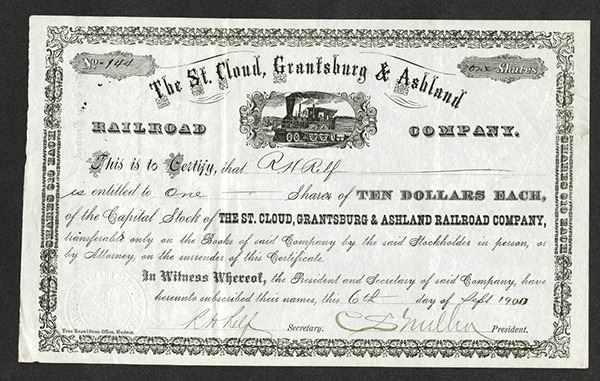 No. 944
one Shares
The St. Cloud, Grantsburg & Ashland
RAILROAD COMPANY.
This is to Certify, that R H Relf
is entitled to one Shares of TEN DOLLARS EACH,
of the Capital Stock of THE ST. CLOUD, GRANTSBURG & ASHLAND RAILROAD COMPANY,
transferable only on the Books of said Company by the said Stockholder in person, or
by Attorney, on the surrender of this Certificate.
In Witness Whereof, the President and Secretary of said Company, have
hereunto subscribed their names, this 6th day of Sept 1900
R H Relf Secretary. President.
True Republican Office, Hudson.
SHARES $10 EACH
SHARES $10 EACH